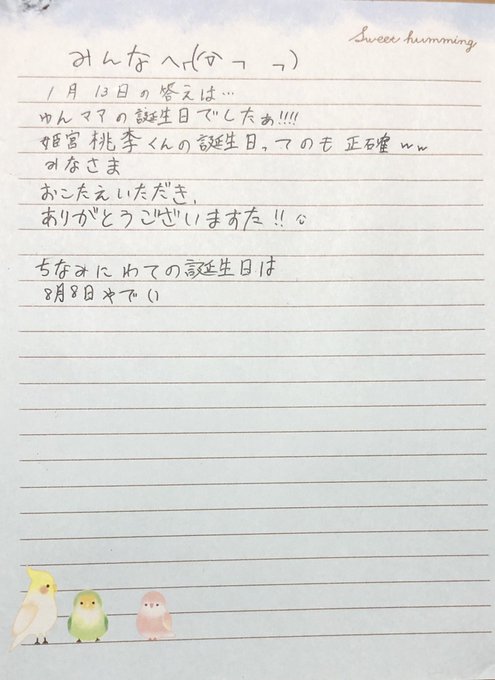 Sweet humming
みんなへ┌(かっ ㄱ)
1月13日の答えは…
ゆんママの誕生日でしたぁ!!!!
姫宮桃李くんの誕生日ってのも正確ww
みなさま
おこたえいただき、
ありがとうございますた!!
ちなみにわての誕生日は
8月8日やでい